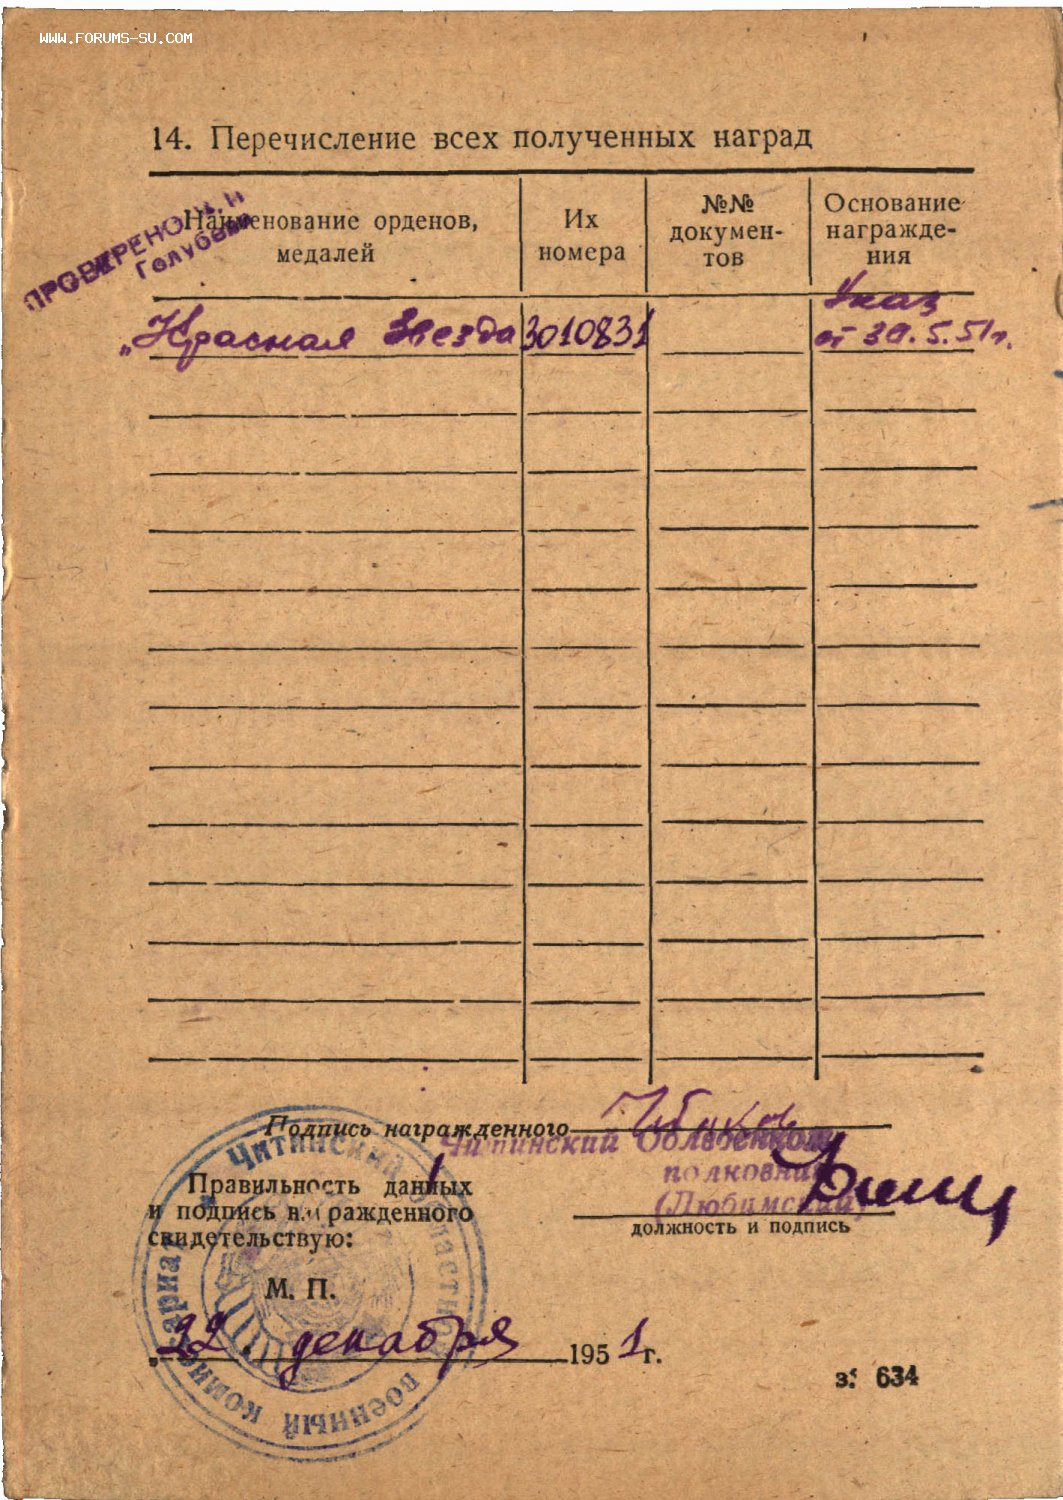 WWW.FORUMS-SU.COM
14. Перечисление всех полученных наград
Наименование орденов, медалей
Их номера
№№ докумен-
тов
Основание
награжде-
ния
ПРОВЕРЕНО
Голубева
„Красная Звезда
3010831
Указ
от 30.5.51г.
Подпись награжденного
Читинский Облвоенком
полковник
(Любимский)
должность и подпись
Правильность данных
и подпись награжденного
свидетельствую:
М. П.
„22 декабря 1951 г.
Читинский областной военный комиссариат
з. 634